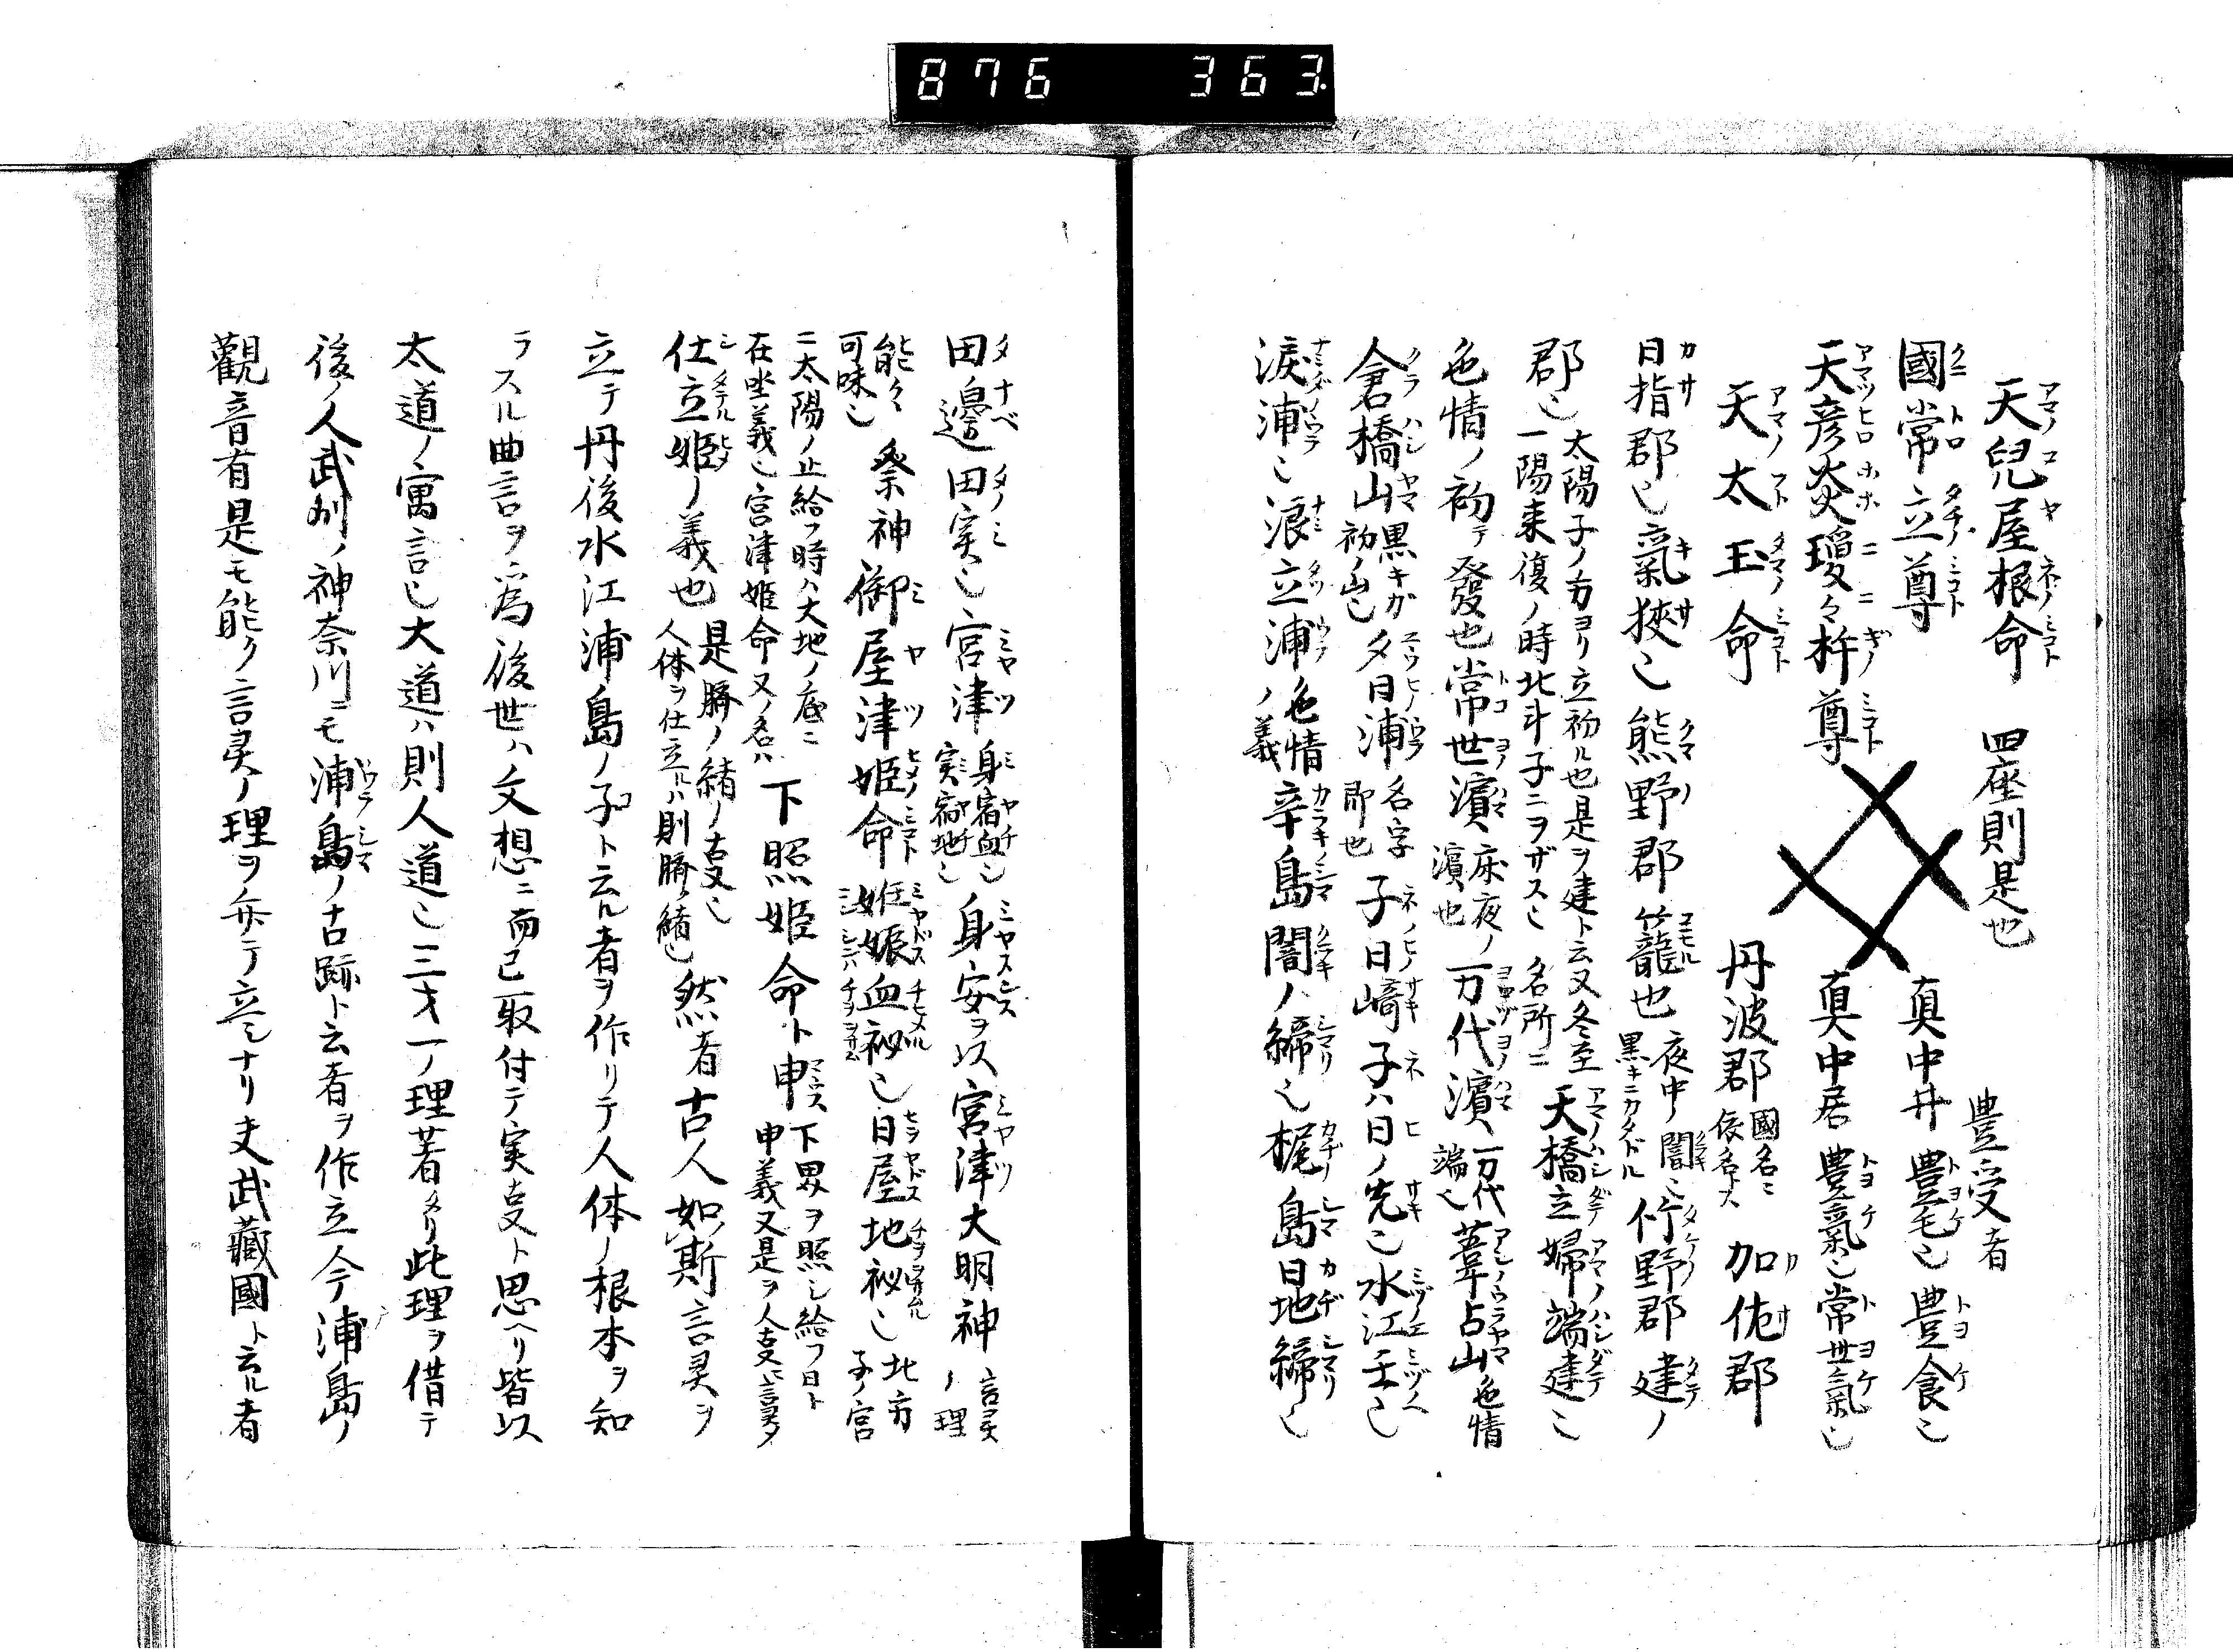 876 363
天兒屋根命 四座則是也
國常立尊
天彦火火瓊々杵尊
天太玉命
豊受者
真中井 豊毛也 豊食也
真中居 豊氣也 常世氣也
丹波郡 國名ニ 仮名ス 加佐郡
日指郡也 氣狹也 熊野郡 籠也 夜中ノ闇也 黒キニカタドル 竹野郡 建ノ
郡也 太陽子ノ方ヨリ立初ル也是ヲ建ト云又冬至 一陽来復ノ時北斗子ニヲザス也 名所ニ 天橋立 婦端建也
色情ノ初テ發也 常世濵 床夜ノ濵也 万代濵 万代端也 葦占山 色情
倉橋山 黒キカ初ノ山也 夕日浦 名字即也 子日﨑 子ハ日ノ先也 水江 壬也
涙浦也 浪立浦ノ 色情義 辛島 闇ノ締也 梶島 日地締也
田邊 田実也 宮津 身宿血也 実宿地也 身安ヲ以 宮津大明神 言灵ノ理
能々可味也 祭神 御屋津姫命 妊娠血祕也 日屋地祕也 北方子ノ宮
ニ太陽ノ止給フ時ハ大地ノ底ニ 在坐義也 宮津姫命又ノ名ハ 下照姫命ト申 下界ヲ照シ給フ日ト 申義又是ヲ人叓ニ言ヘハ
仕立姫ノ義也 是臍ノ緒ノ古叓也 人体ヲ仕立ルハ則臍ノ緒也 然者古人如斯言灵ヲ
立テ丹後水江浦島ノ子ト云ル者ヲ作リテ人体ノ根本ヲ知
ラスル曲言ヲ為後世ハ文想ニ而已取付テ実叓ト思ヘリ皆以
太道ノ寓言也大道ハ則人道也三才一ノ理著メリ此理ヲ借テ
後ノ人武刕ノ神奈川ニモ浦島ノ古跡ト云者ヲ作立今浦島ノ
觀音有是モ能ク言灵ノ理ヲ弁テ立シナリ夫武藏國ト云ル者